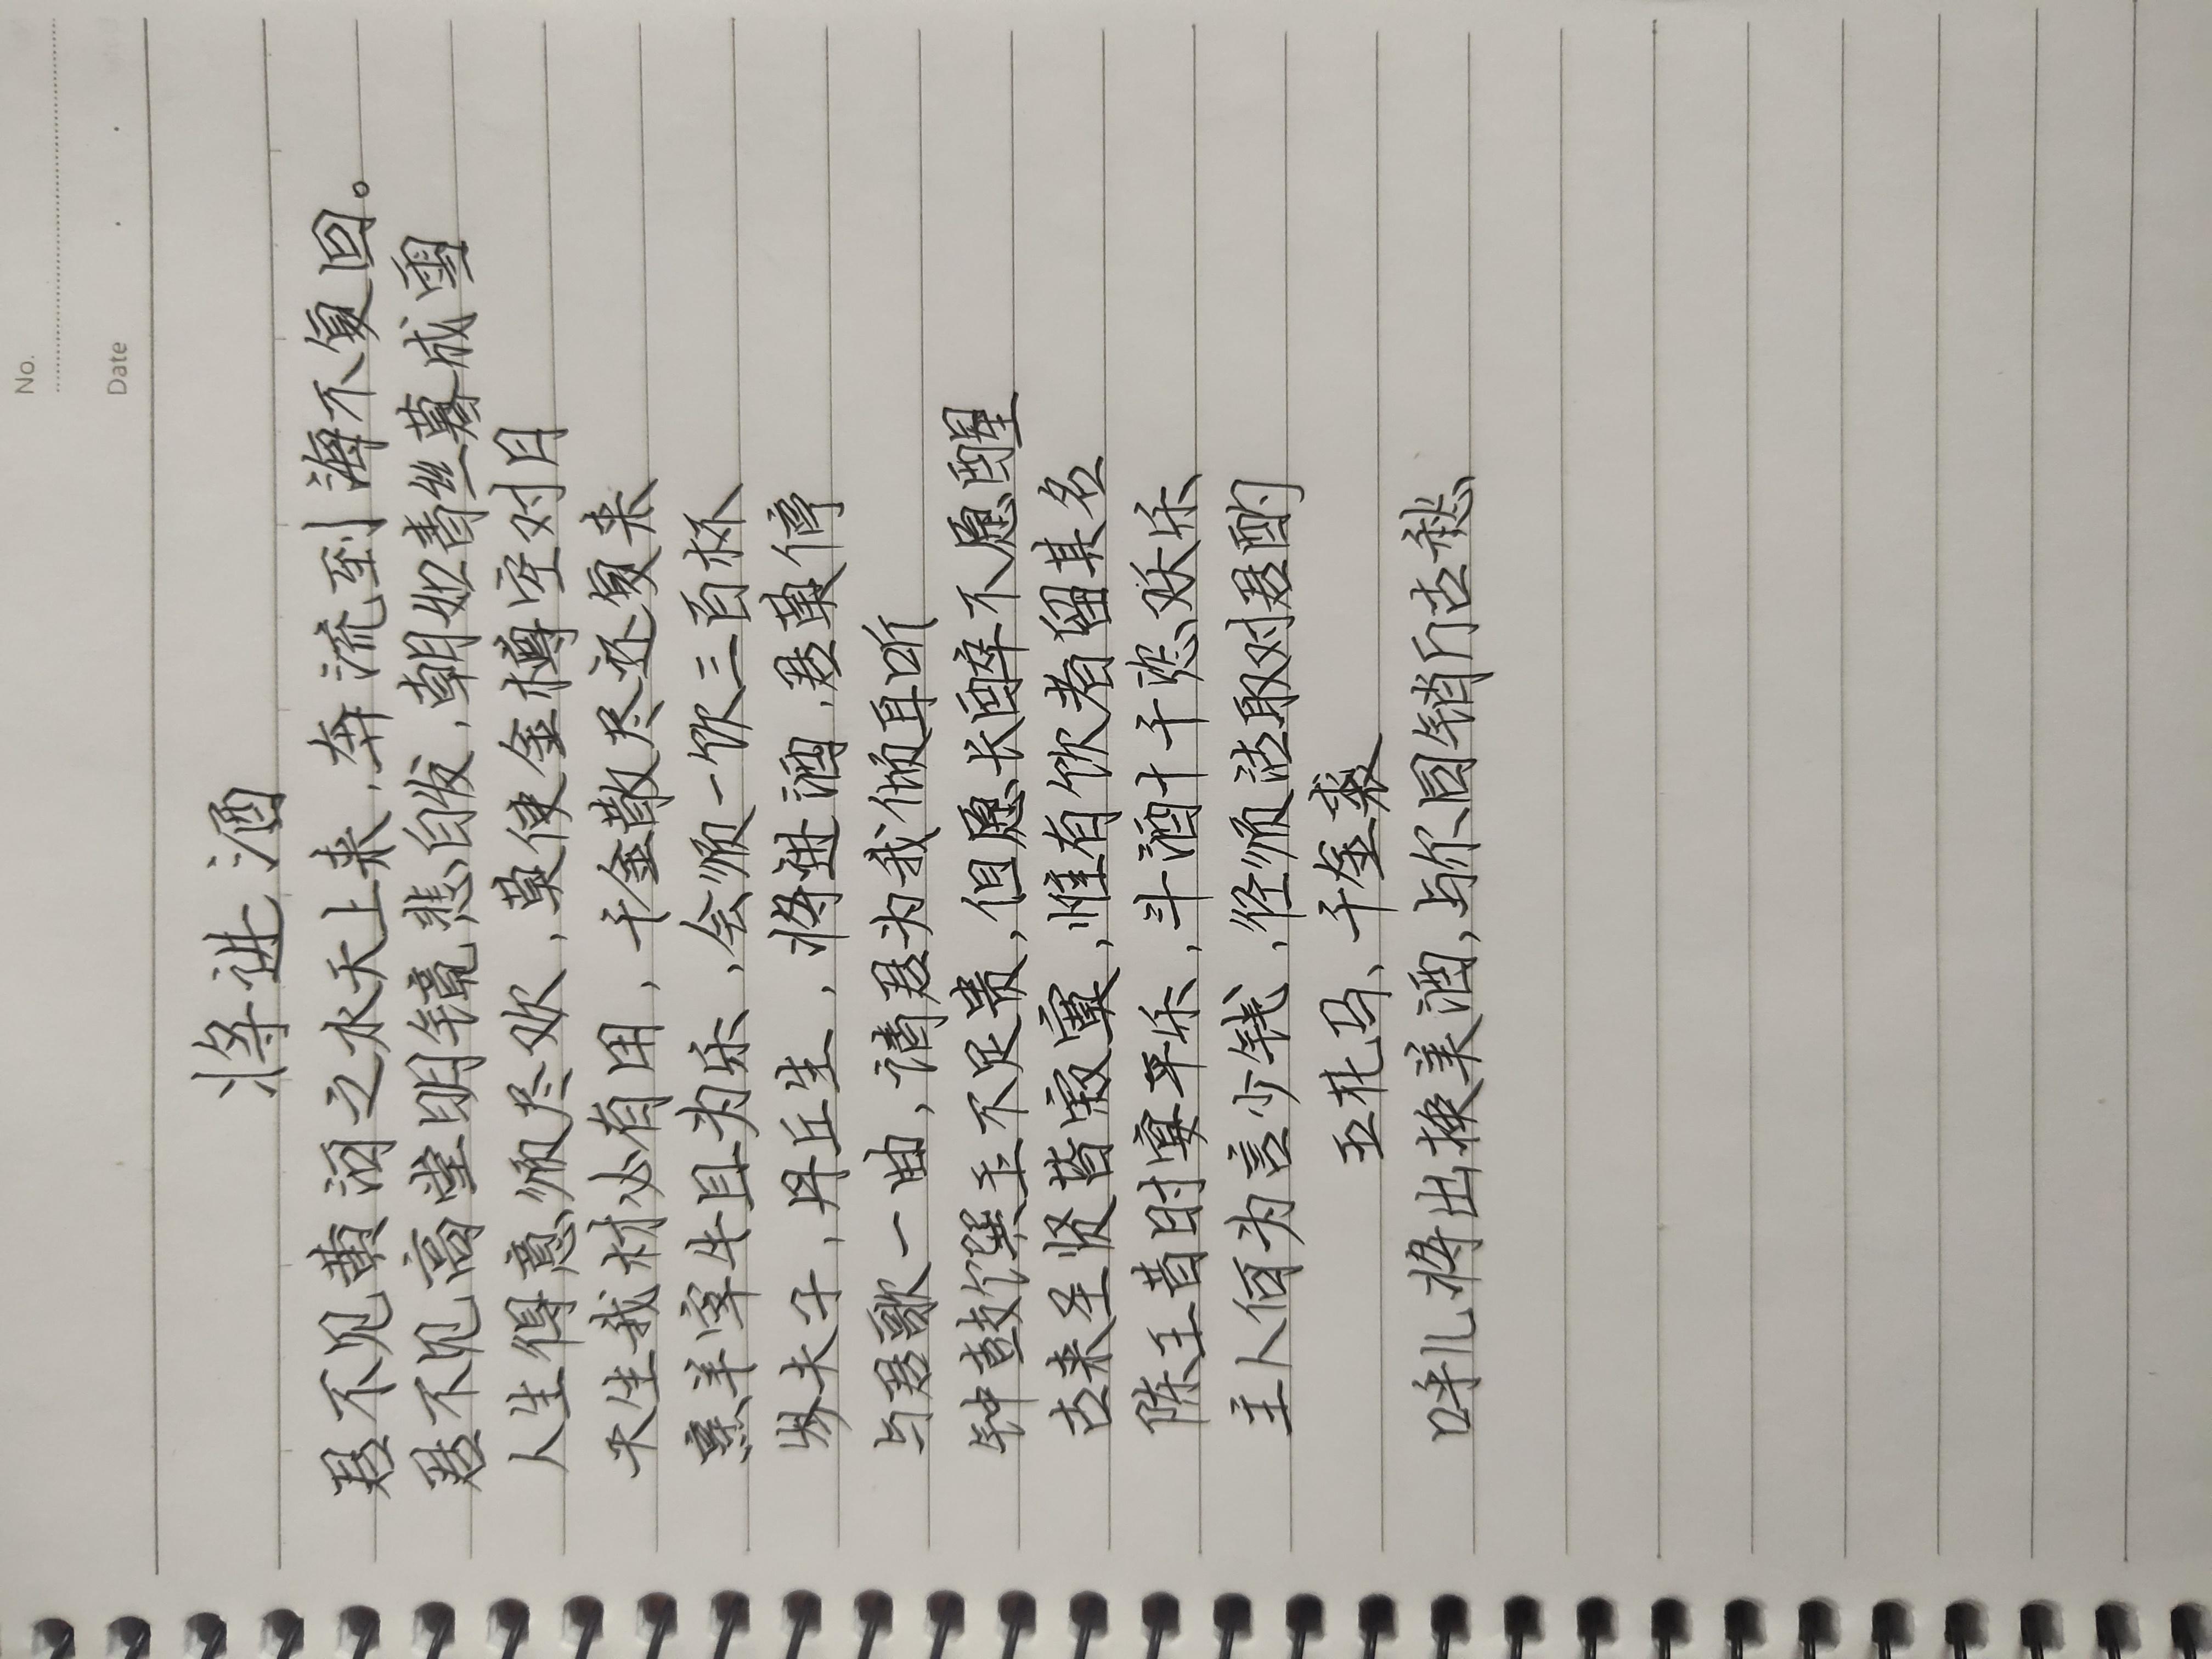 No.
Date
将进酒
君不见黄河之水天上来，奔流到海不复回。
君不见高堂明镜悲白发，朝如青丝暮成雪
人生得意须尽欢，莫使金樽空对日
天生我材必有用，千金散尽还复来
烹羊宰牛且为乐，会须一饮三百杯
岑夫子，丹丘生，将进酒，君莫停
与君歌一曲，请君为我倾耳听
钟鼓馔玉不足贵，但愿长醉不愿醒
古来圣贤皆寂寞，惟有饮者留其名
陈王昔时宴平乐，斗酒十千恣欢乐
主人何为言少钱，径须沽取对君酌
五花马、千金裘
呼儿将出换美酒，与尔同销万古愁